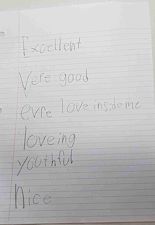 Excellent
Vere good
evre love inside me
loveing
youthful
Nice